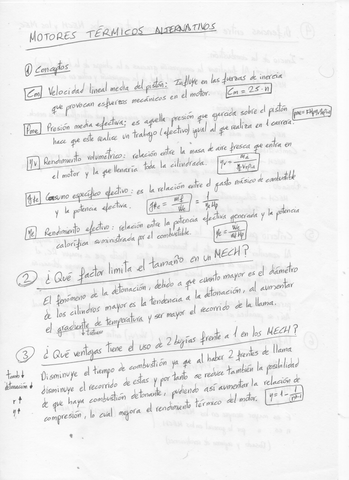 MOTORES TÉRMICOS ALTERNATIVOS
① Conceptos
Cm Velocidad lineal media del pistón: Influye en las fuerzas de inercia
que provocan esfuerzos mecánicos en el motor. Cm = 2S·n
Pme Presión media efectiva: es aquella presión que ejercida sobre el pistón
hace que este realice un trabajo (efectivo) igual al que realiza en 1 carrera
ηv Rendimiento volumétrico: relación entre la masa de aire fresco que entra en
el motor y la que llenaría toda la cilindrada.
Consumo específico efectivo: es la relación entre el gasto másico de combustible
y la potencia efectiva.
Rendimiento efectivo: relación entre la potencia efectiva generada y la potencia
calorífica suministrada por el combustible.
② ¿Qué factor limita el tamaño en un MECH?
El fenómeno de la detonación, debido a que cuanto mayor es el diámetro
de los cilindros mayor es la tendencia a la detonación, al aumentar
el gradiente de temperatura y ser mayor el recorrido de la llama.
③ ¿Qué ventajas tiene el uso de 2 bujías frente a 1 en los MECH?
Disminuye el tiempo de combustión ya que al haber 2 frentes de llama
disminuye el recorrido de estas y por tanto se reduce también la posibilidad
detonación ↓
de que haya combustión detonante; pudiendo así aumentar la relación de
r ↑
compresión, lo cual mejora el rendimiento térmico del motor.
η ↑